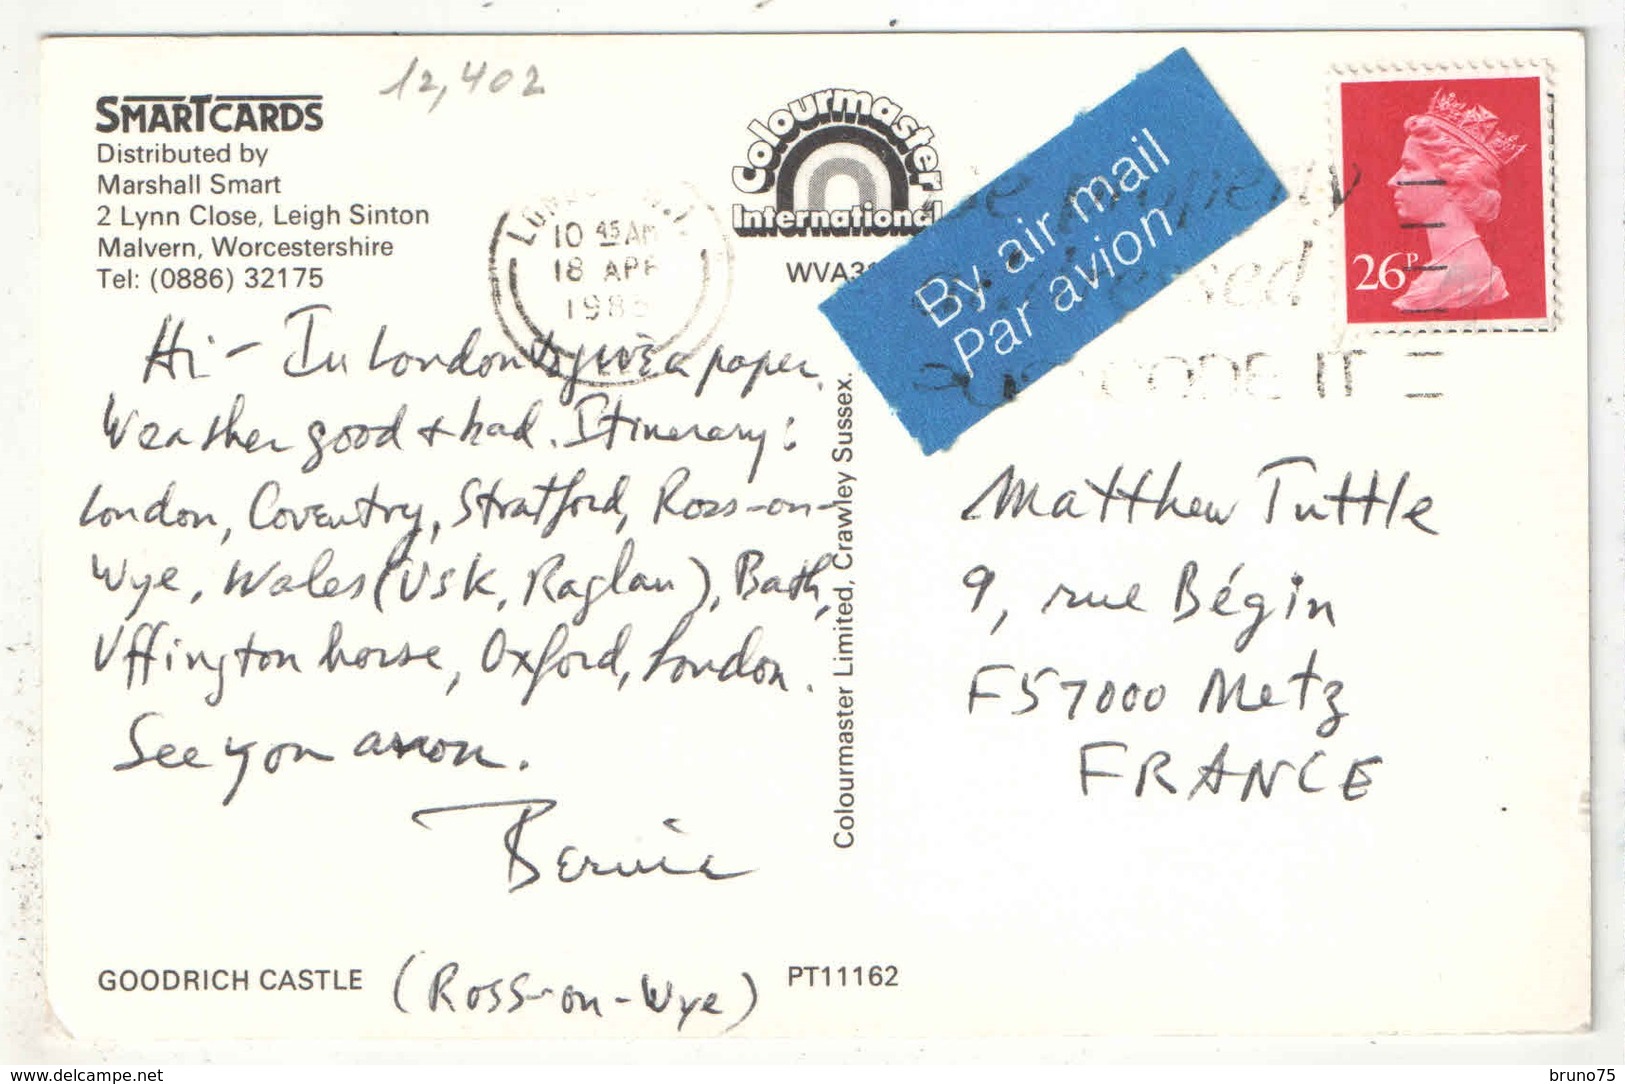 12,402
SMARTCARDS
Distributed by
Marshall Smart
2 Lynn Close, Leigh Sinton
Malvern, Worcestershire
Tel: (0886) 32175
Colourmaster
International
By air mail
Par avion
26P
10 45 AM
18 APR
CODE IT
Hi - In London to give a paper.
Weather good & bad. Itinerary:
London, Coventry, Stratford, Ross-on-
Wye, Wales (Usk, Raglan), Bath,
Uffington horse, Oxford, London.
See you anon.
Bernie
Colourmaster Limited, Crawley Sussex.
Matthew Tuttle
9, rue Bégin
F57000 Metz
FRANCE
GOODRICH CASTLE (Ross-on-Wye) PT11162
https://www.delcampe.net
bruno75